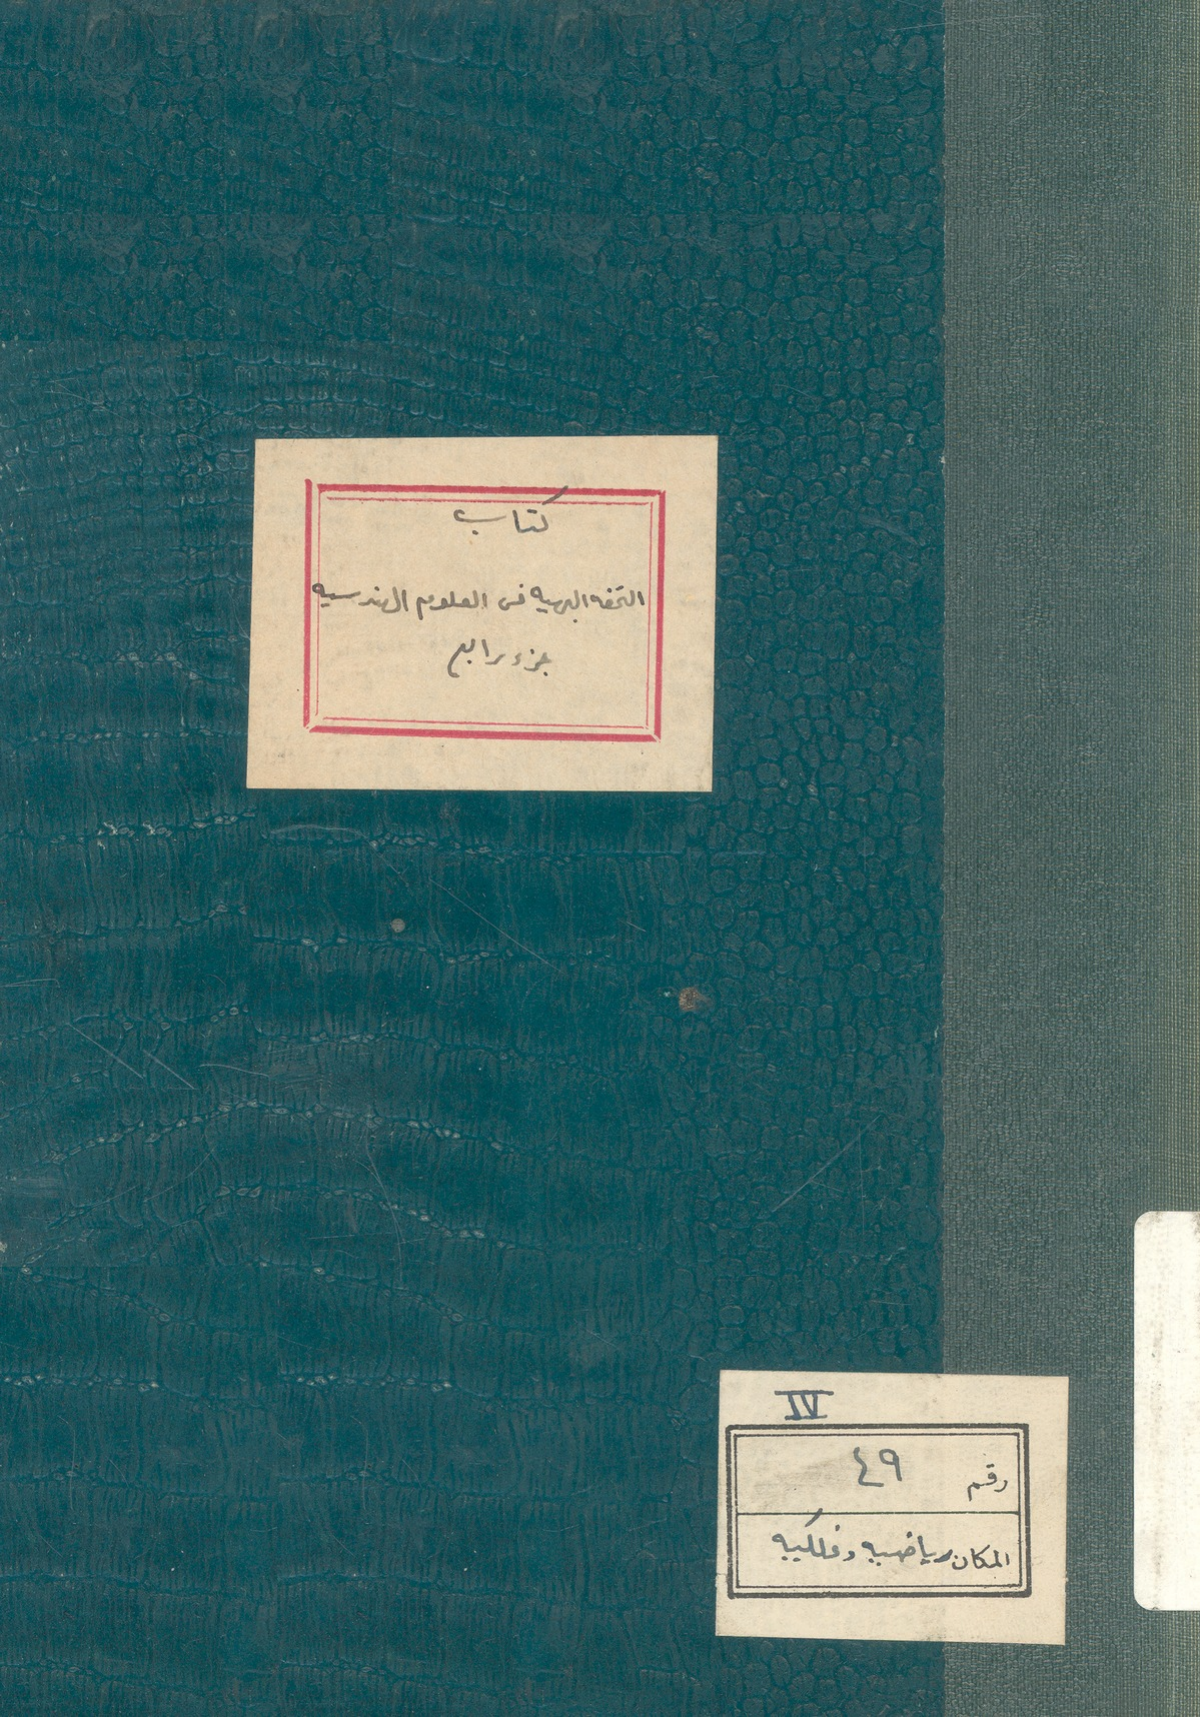 كتاب
التحفه البهيه فى العلوم الهندسيه
جزء رابع
IV
رقم ٤٩
المكان رياضيه وفلكيه